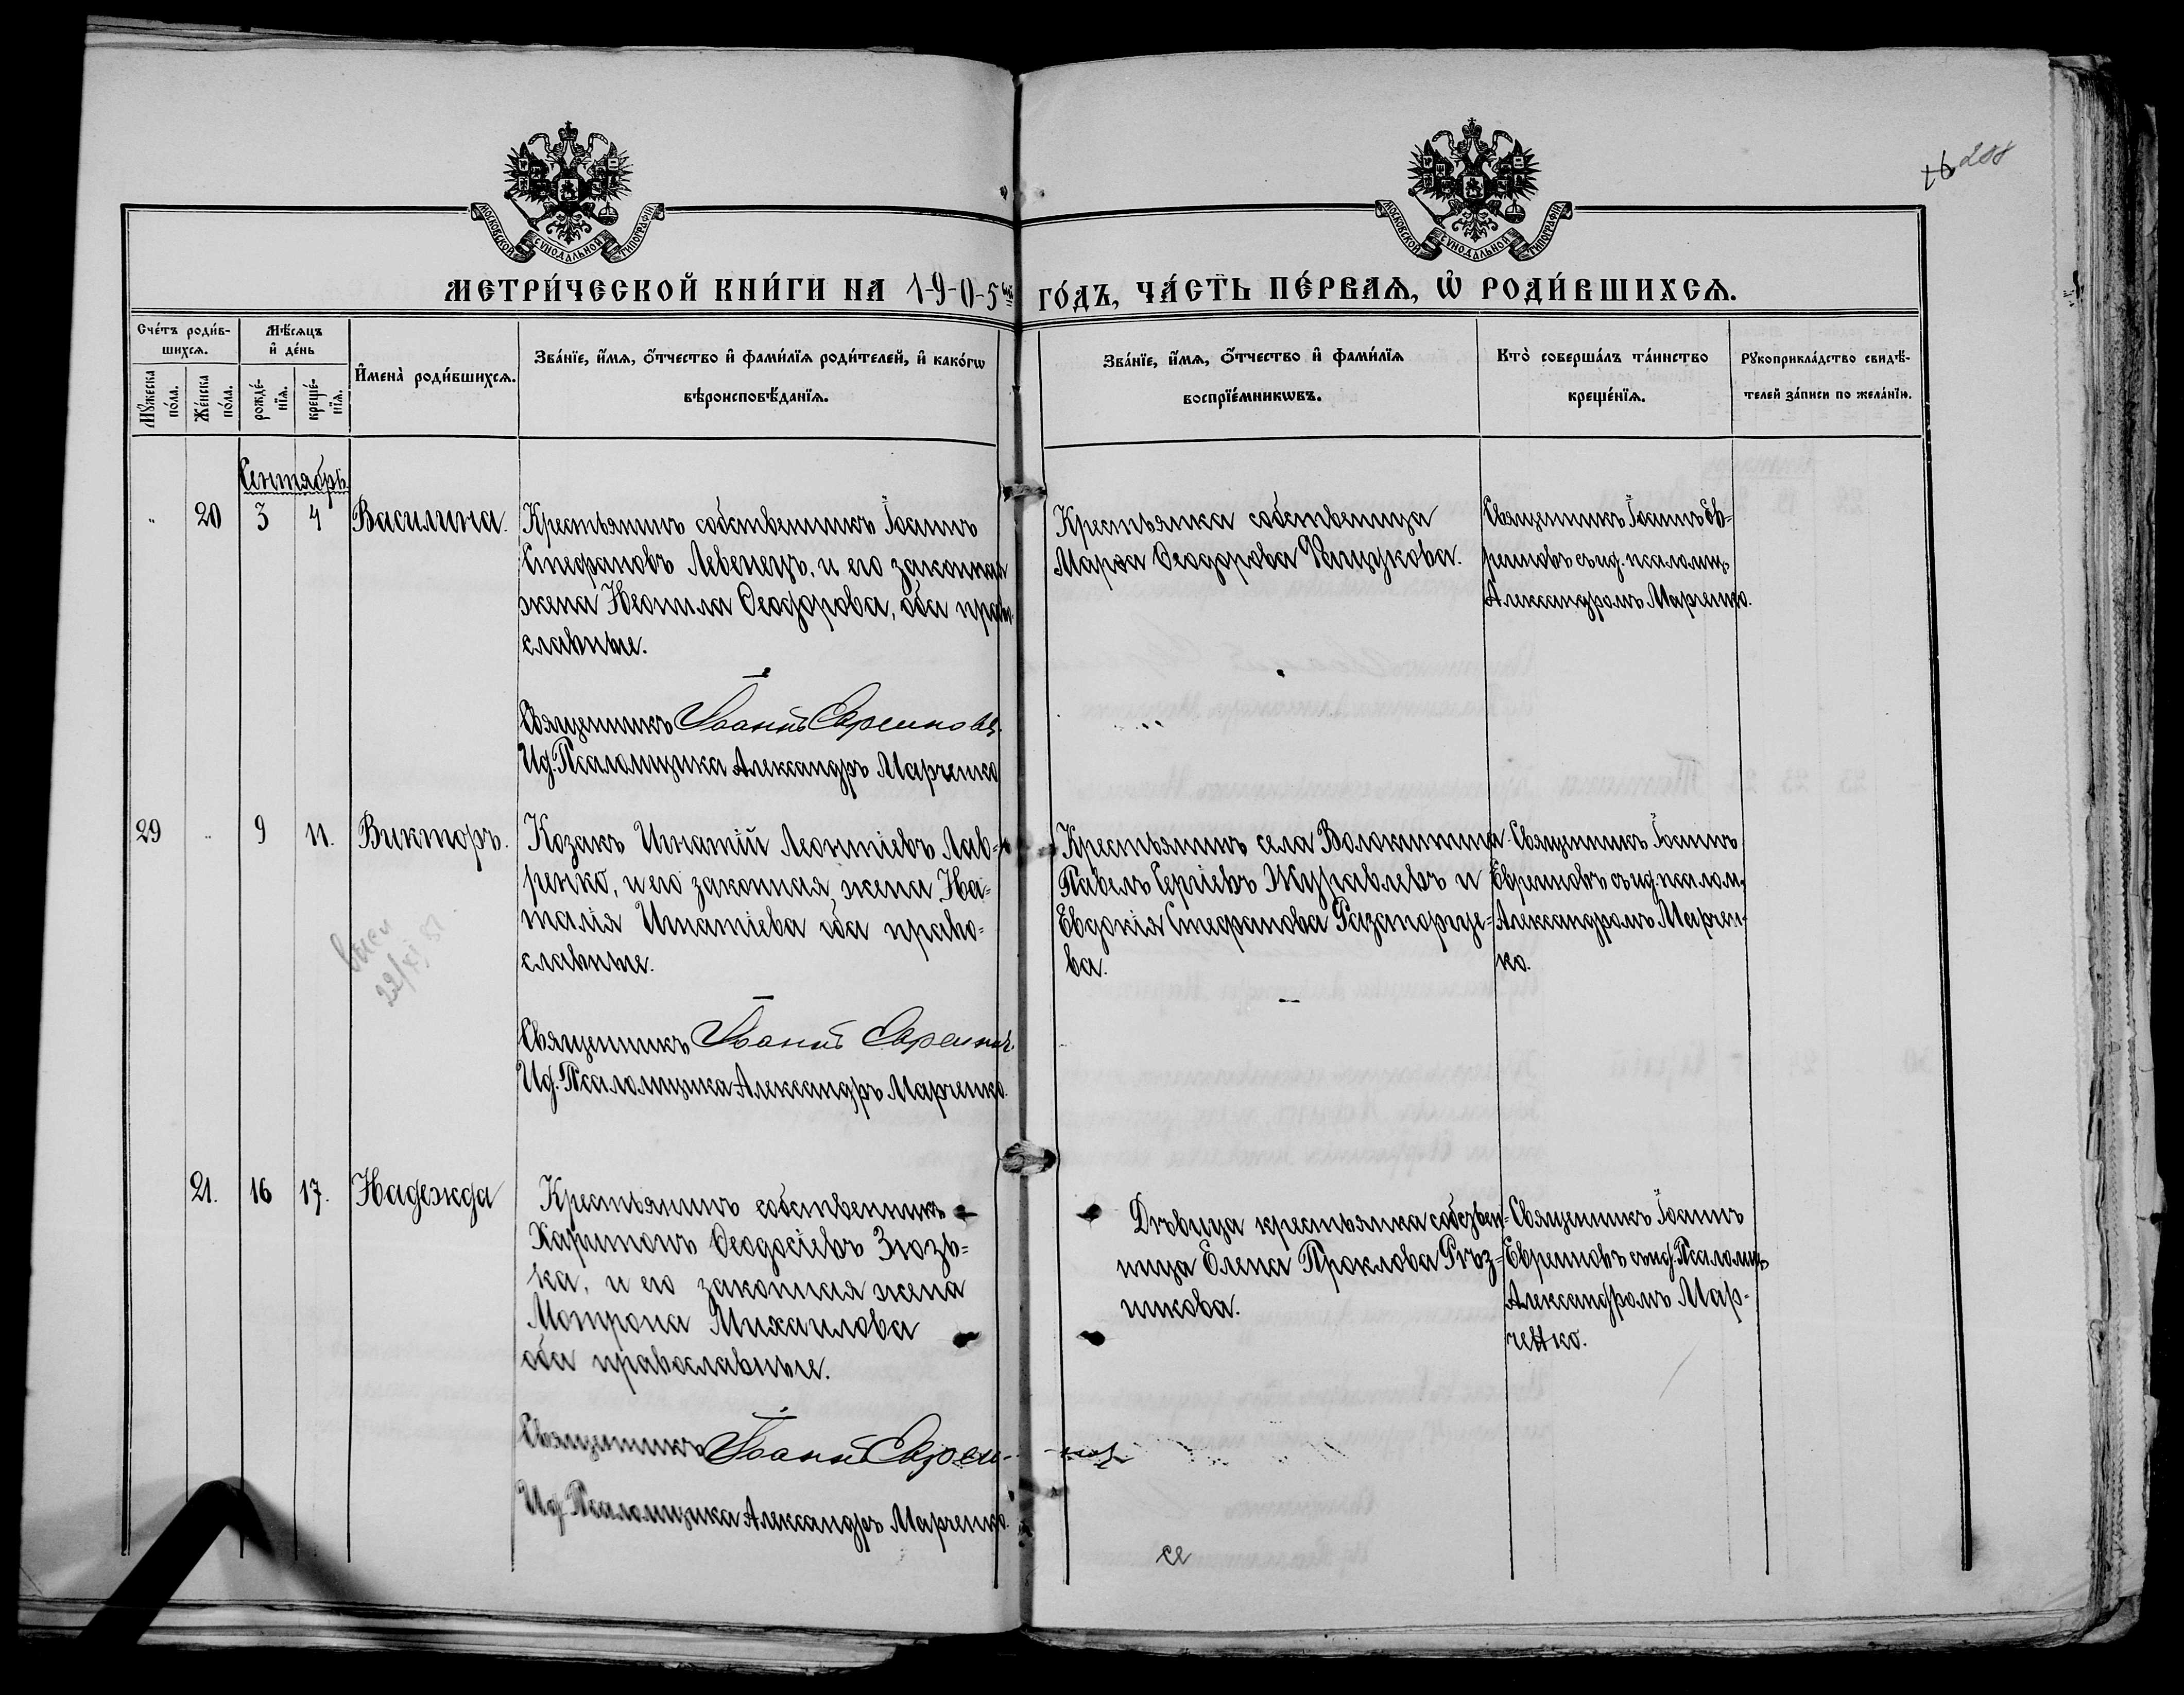 288
МОСКОВСКОЙ СѴНОДАЛЬНОЙ ТИПОГРАФІИ
МОСКОВСКОЙ СѴНОДАЛЬНОЙ ТИПОГРАФІИ
МЕТРИ́ЧЕСКОЙ КНИ́ГИ НА 1905ый ГО́ДЪ, ЧА́СТЬ ПЕ́РВАѦ, Ѡ҆ РОДИ́ВШИХСѦ.
Сче́тъ роди́в-
шихсѧ.
Мꙋ́жеска
по́ла.
Же́нска
по́ла.
Мѣ́сѧцъ
и҆ де́нь
рожде́-
нїѧ.
креще́-
нїѧ.
И҆мена̀ роди́вшихсѧ.
Зва́нїе, и҆́мѧ, ѻ҆́тчество и҆ фами́лїѧ роди́телей, и҆ како́гѡ
вѣроисповѣ́данїѧ.
Зва́нїе, и҆́мѧ, ѻ҆́тчество и҆ фами́лїѧ
воспрїе́мникѡвъ.
Кто̀ соверша́лъ та́инство
креще́нїѧ.
Рꙋкоприкла́дство свидѣ́-
телей за́писи по жела́нїю.
Сентябрь
„ 20 3 4 Василина.
Крестьянинъ собственникъ Іоаннъ
Стефановъ Левенецъ, и его законная
жена Неонила Ѳеодорова, оба право-
славные.
Священникъ Іоаннъ Евреиновъ.
Ид. Псаломщика Александръ Марченко
Крестьянка собственница
Марѳа Ѳеодорова
Священникъ Іоаннъ Ев-
реиновъ съ ид. псаломщ.
Александромъ Марченко.
29 „ 9 11. Викторъ.
22/XI
Козакъ Игнатій Леонтіевъ Лав-
ренко, и его законная жена На-
талія Игнатіева оба право-
славные.
Священникъ Іоаннъ Евреиновъ.
Ид. Псаломщика Александръ Марченко.
Крестьянинъ села Волокитина
Павелъ Сергіевъ Журавлевъ и
Евдокія Стефанова Разаторгуе-
ва.
Священникъ Іоаннъ
Евреиновъ съ ид. псалом.
Александромъ Марчен-
ко.
21. 16 17. Надежда
Крестьянинъ собственникъ
Харитонъ Ѳеодосіевъ Зюзь-
ка, и его законная жена
Мотрона Михаилова
оба православные.
Священникъ Іоаннъ Евреи-
новъ
Ид. Псаломщика Александръ Марченко.
Дѣвица крестьянка собствен-
ница Елена Проклова Рѣз-
никова.
Священникъ Іоаннъ
Евреиновъ съ ид. Псаломщ.
Александромъ Мар-
ченко.